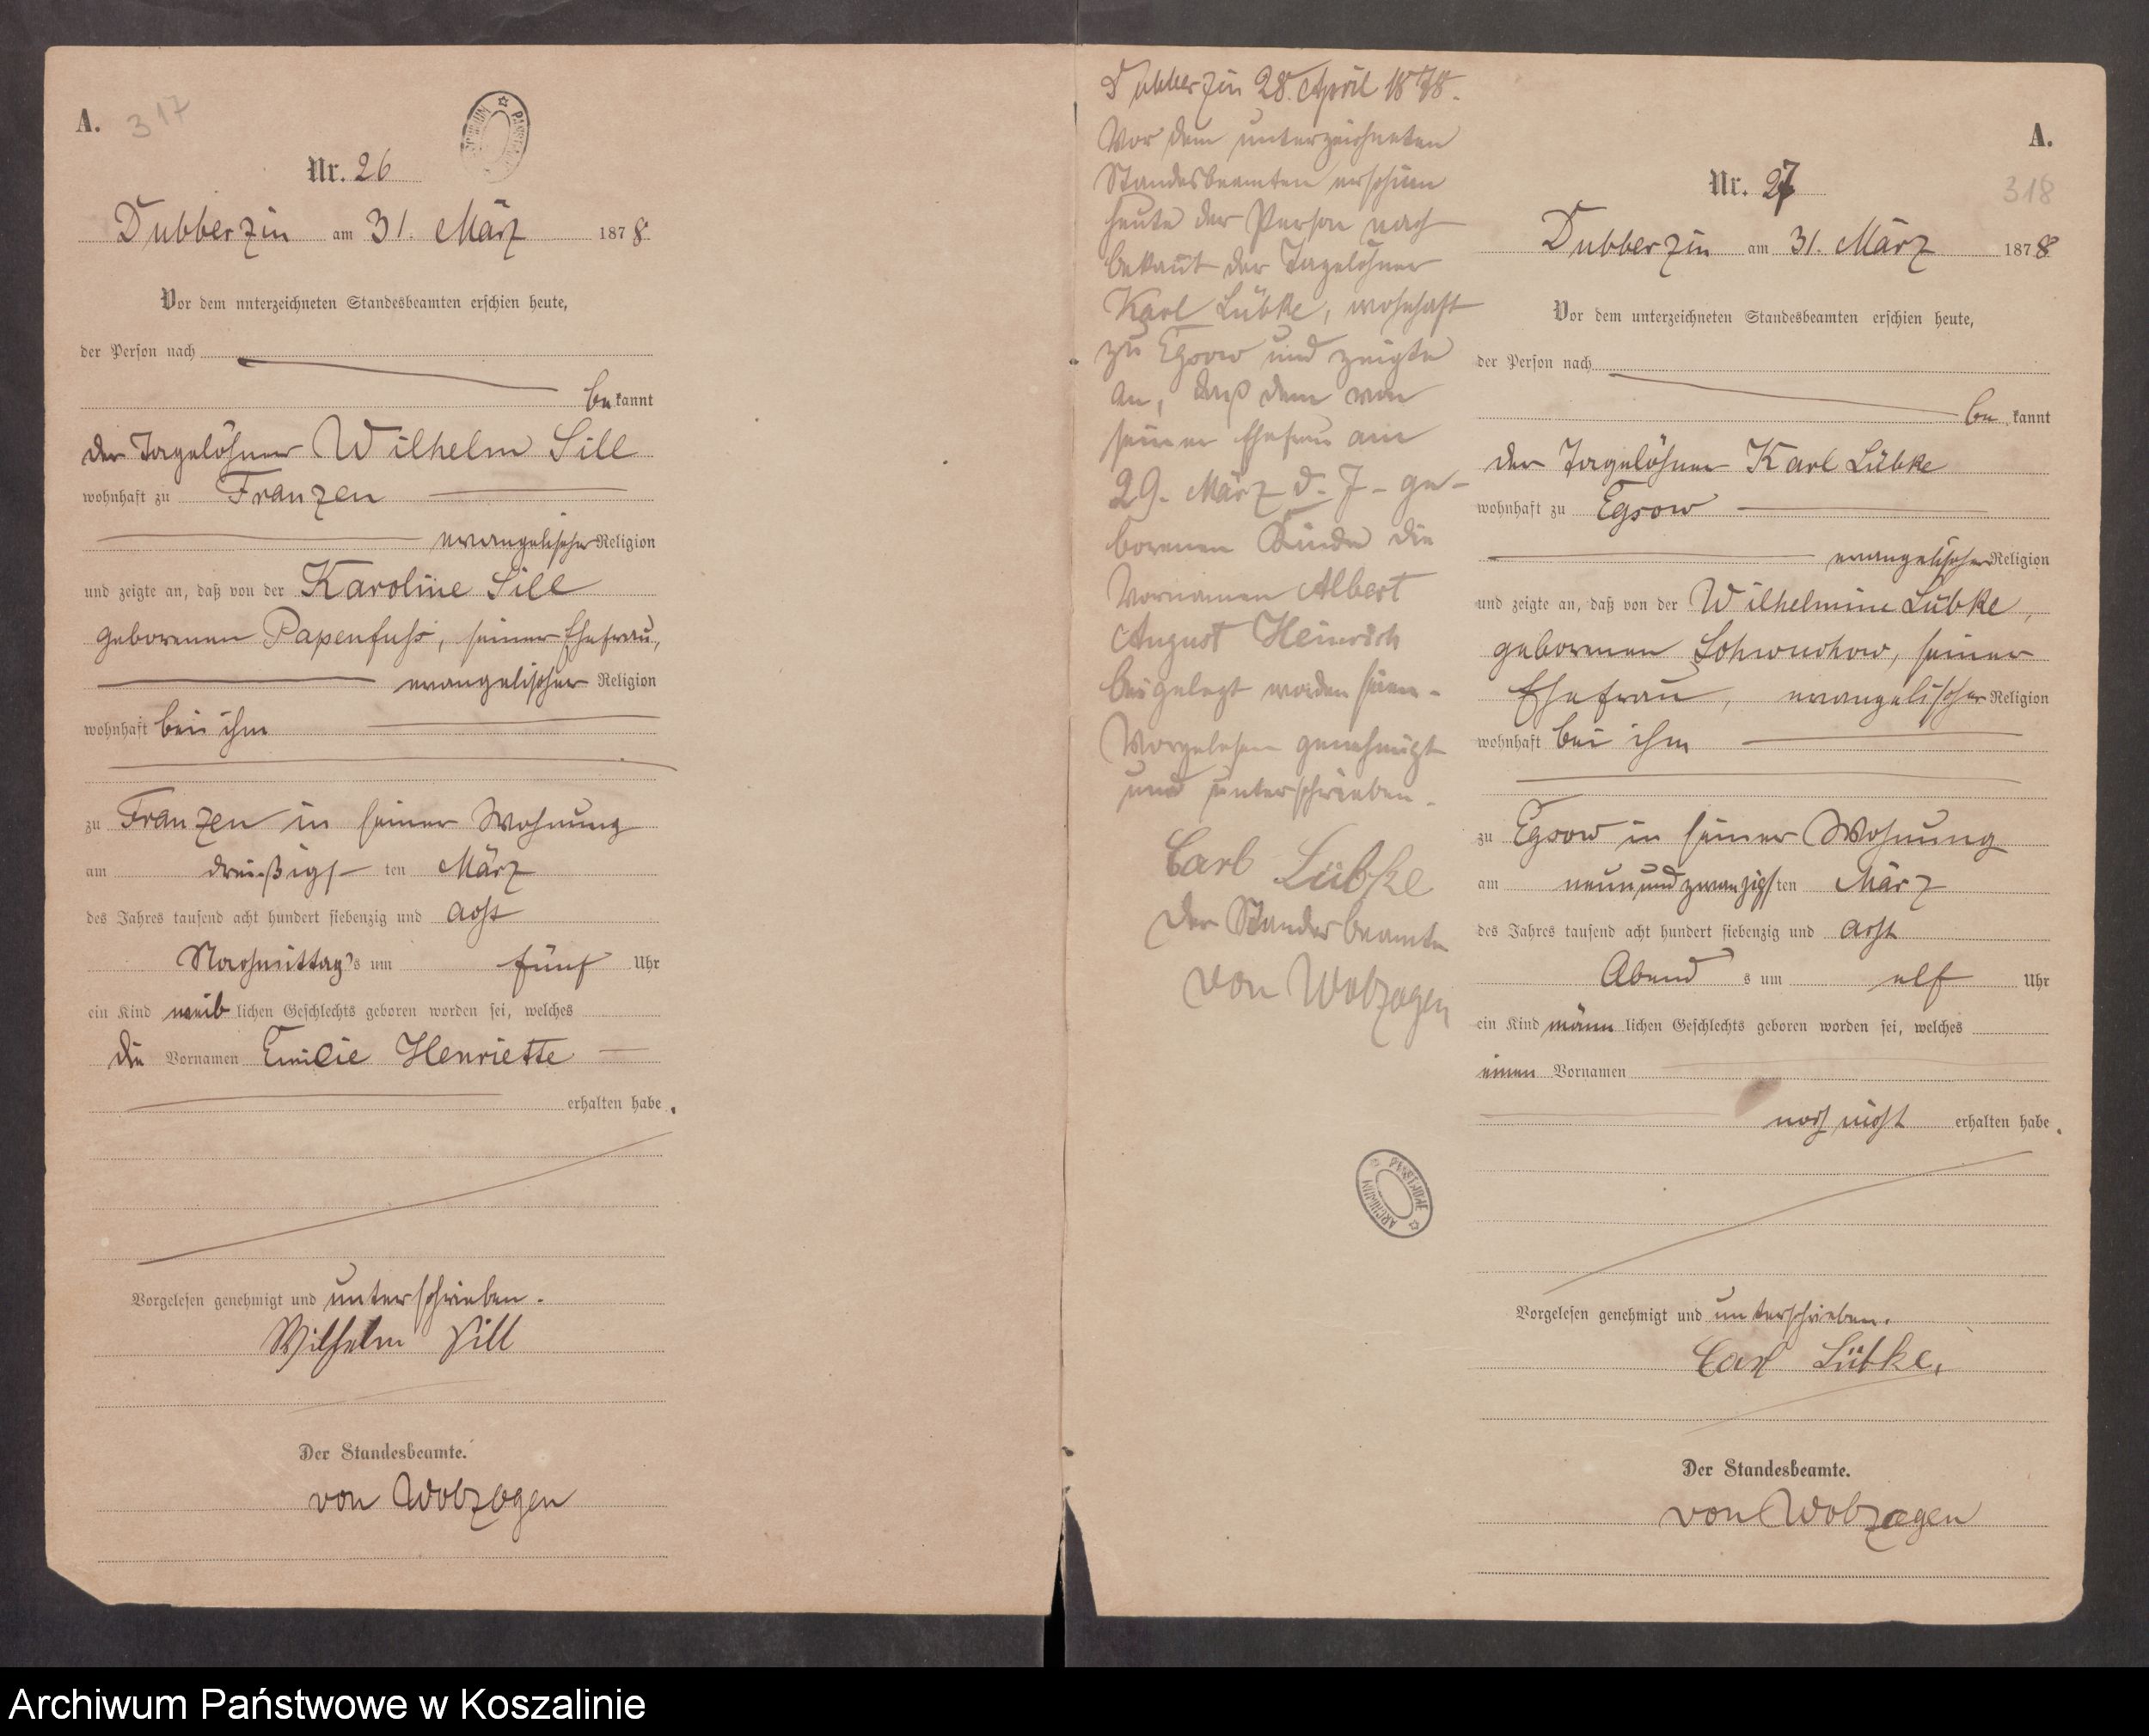 A.
317
Nr. 26
Dubberzin am 31. März 1878.
Vor dem unterzeichneten Standesbeamten erschien heute,
der Person nach
bekannt
der Tagelöhner Wilhelm Sill
wohnhaft zu Franzen
evangelischer Religion
und zeigte an, daß von der Karoline Sill
geborenen Papenfuß, seiner Ehefrau,
evangelischer Religion
wohnhaft bei ihm
zu Franzen in seiner Wohnung
am dreißigsten März
des Jahres tausend acht hundert siebenzig und acht
Nachmittags um fünf Uhr
ein Kind weiblichen Geschlechts geboren worden sei, welches
die Vornamen Emilie Henriette
erhalten habe.
Vorgelesen genehmigt und unterschrieben.
Wilhelm Sill
Der Standesbeamte.
von Wobzogen
Dubberzin 28. April 1878.
Vor dem unterzeichneten
Standesbeamten erschien
heute der Person nach
bekannt der Tagelöhner
Karl Lübke, wohnhaft
zu Egsow und zeigte
an, daß dem von
seiner Ehefrau am
29. März d. J. ge-
borenen Kinde die
Vornamen Albert
August Heinrich
beigelegt worden seien.
Vorgelesen genehmigt
und unterschrieben.
Carl Lübke
Der Standesbeamte
von Wobzogen
ARCHIWUM PAŃSTWOWE
A.
318
Nr. 27
Dubberzin am 31. März 1878
Vor dem unterzeichneten Standesbeamten erschien heute,
der Person nach
bekannt
der Tagelöhner Karl Lübke
wohnhaft zu Egsow
evangelischer Religion
und zeigte an, daß von der Wilhelmine Lübke,
geborenen Schwuchow, seiner
Ehefrau, evangelischer Religion
wohnhaft bei ihm
zu Egsow in seiner Wohnung
am neunundzwanzigsten März
des Jahres tausend acht hundert siebenzig und acht
Abends um elf Uhr
ein Kind männlichen Geschlechts geboren worden sei, welches
einen Vornamen
noch nicht erhalten habe.
Vorgelesen genehmigt und unterschrieben.
Carl Lübke.
Der Standesbeamte.
von Wobzogen
Archiwum Państwowe w Koszalinie